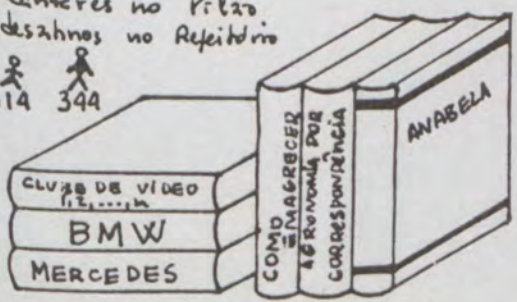 no
desahnos no Refeitório
344
CLUBE DE VÍDEO
1, 2, ..., n
BMW
MERCEDES
COMO
EMAGRECER
AGRONOMIA POR
CORRESPONDÊNCIA
ANABELA